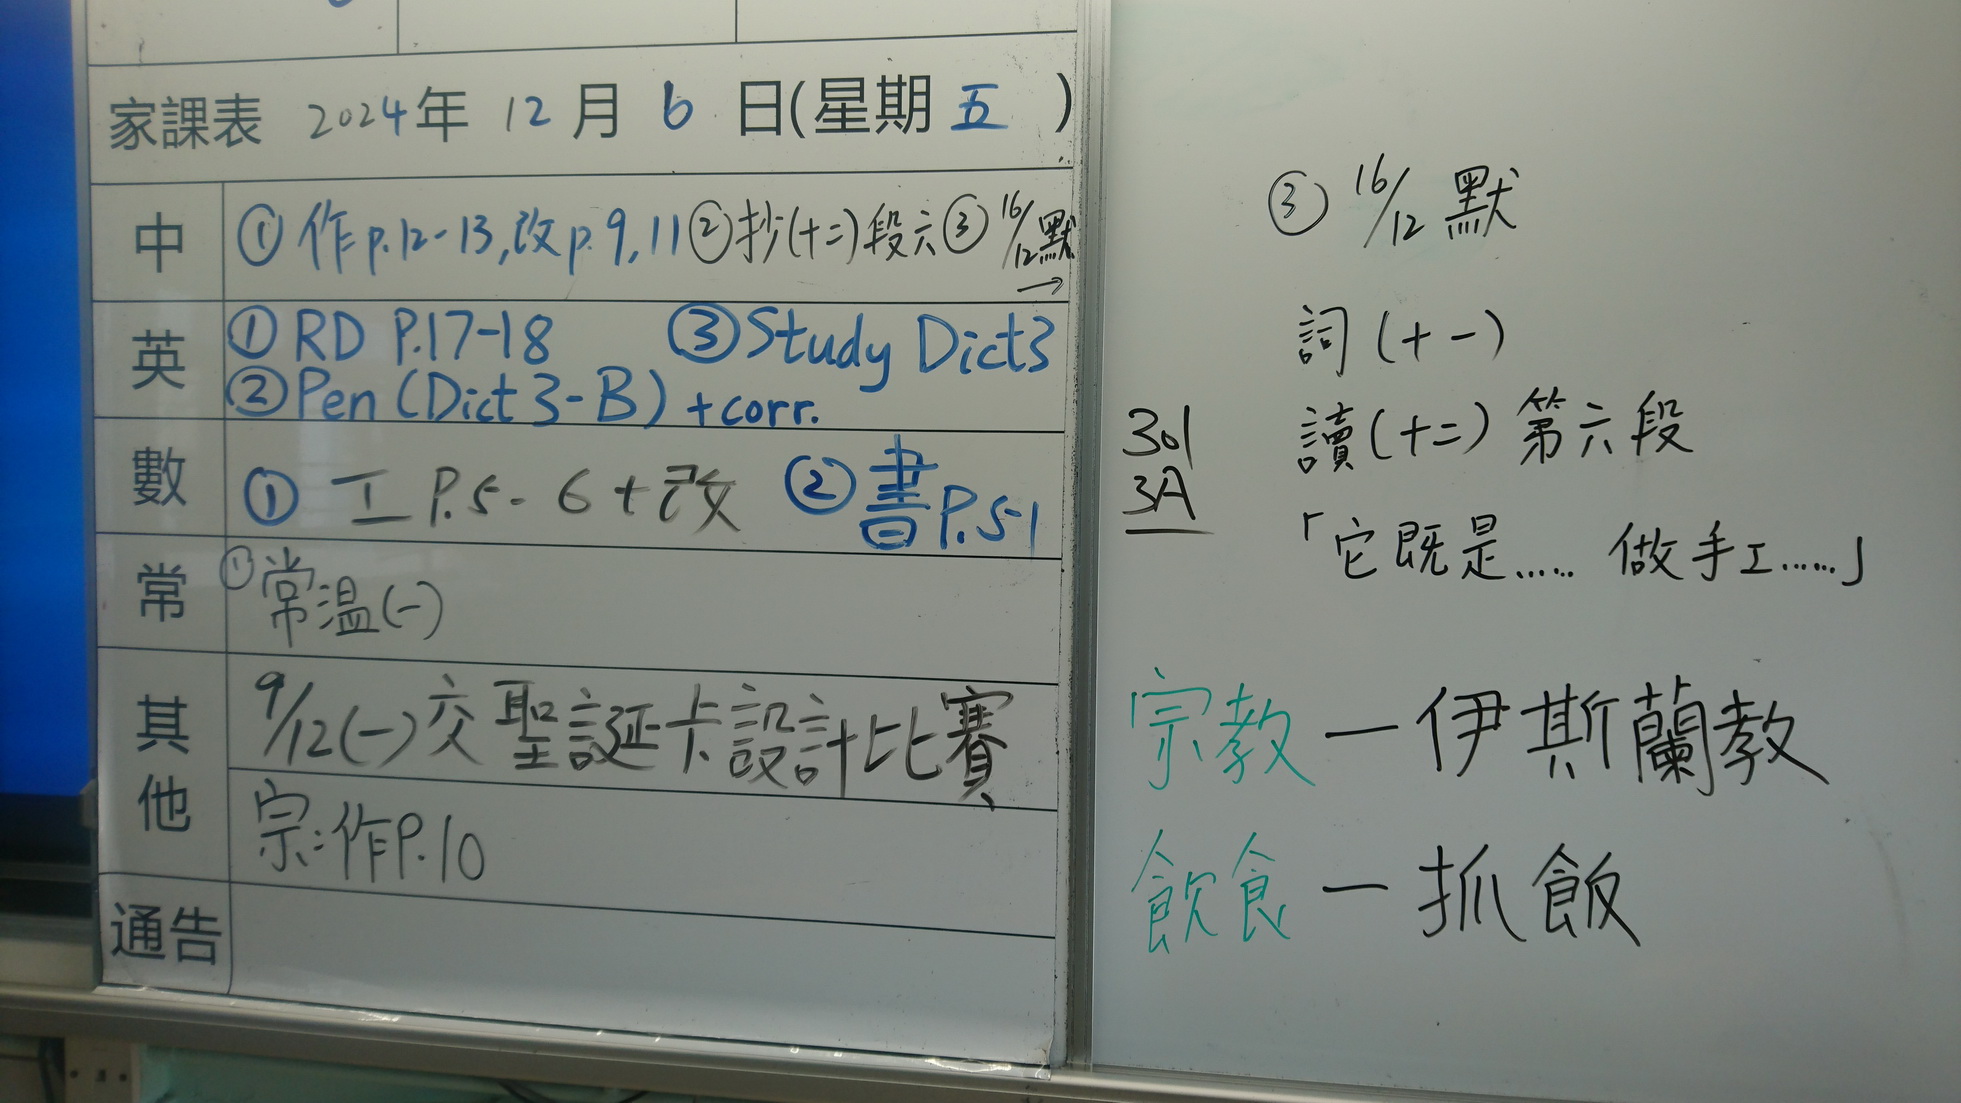 家課表 2024年 12月 6日(星期五)
中 ①作p.12-13,改p.9,11②抄(十二)段六③16/12默→
英 ①RD P.17-18 ③Study Dict3
②Pen(Dict3-B)+corr.
數 ①工P.5-6+改 ②書P.51
常 ①常温(一)
其他 9/12(一)交聖誕卡設計比賽
宗:作P.10
通告
③16/12默
詞(十一)
讀(十二)第六段
「它既是......做手工......」
301
3A
宗教－伊斯蘭教
飲食－抓飯